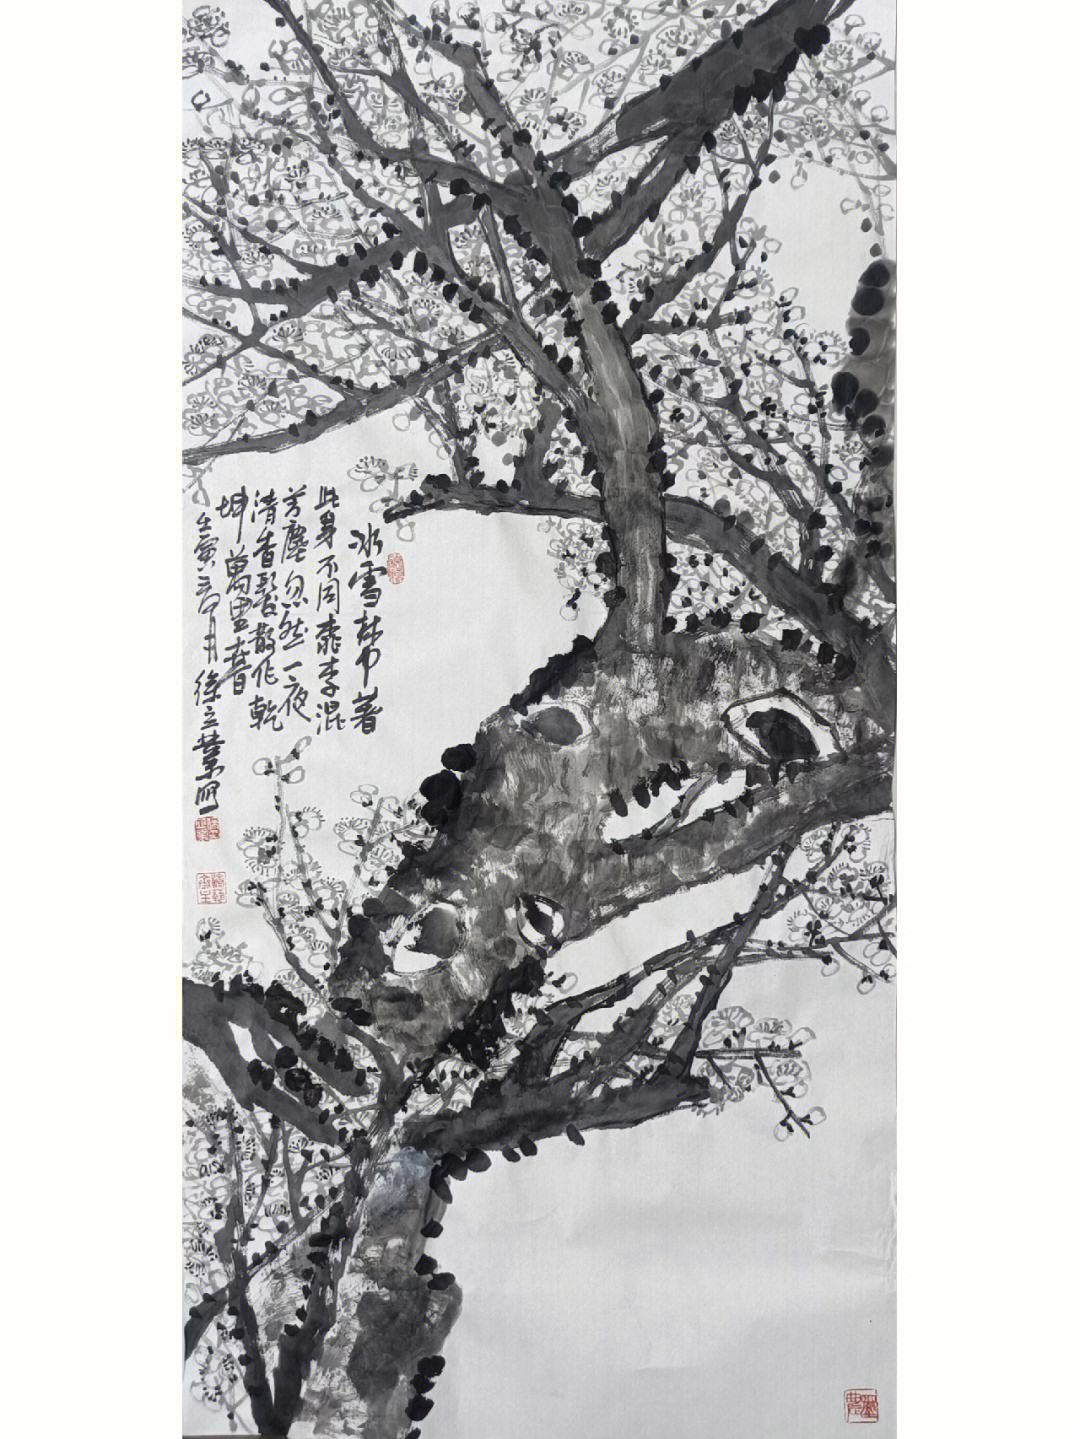 冰雪林中著
此身不同桃李混
芳塵忽然一夜
清香髮散作乾
坤萬里春
壬寅 月 徐立業